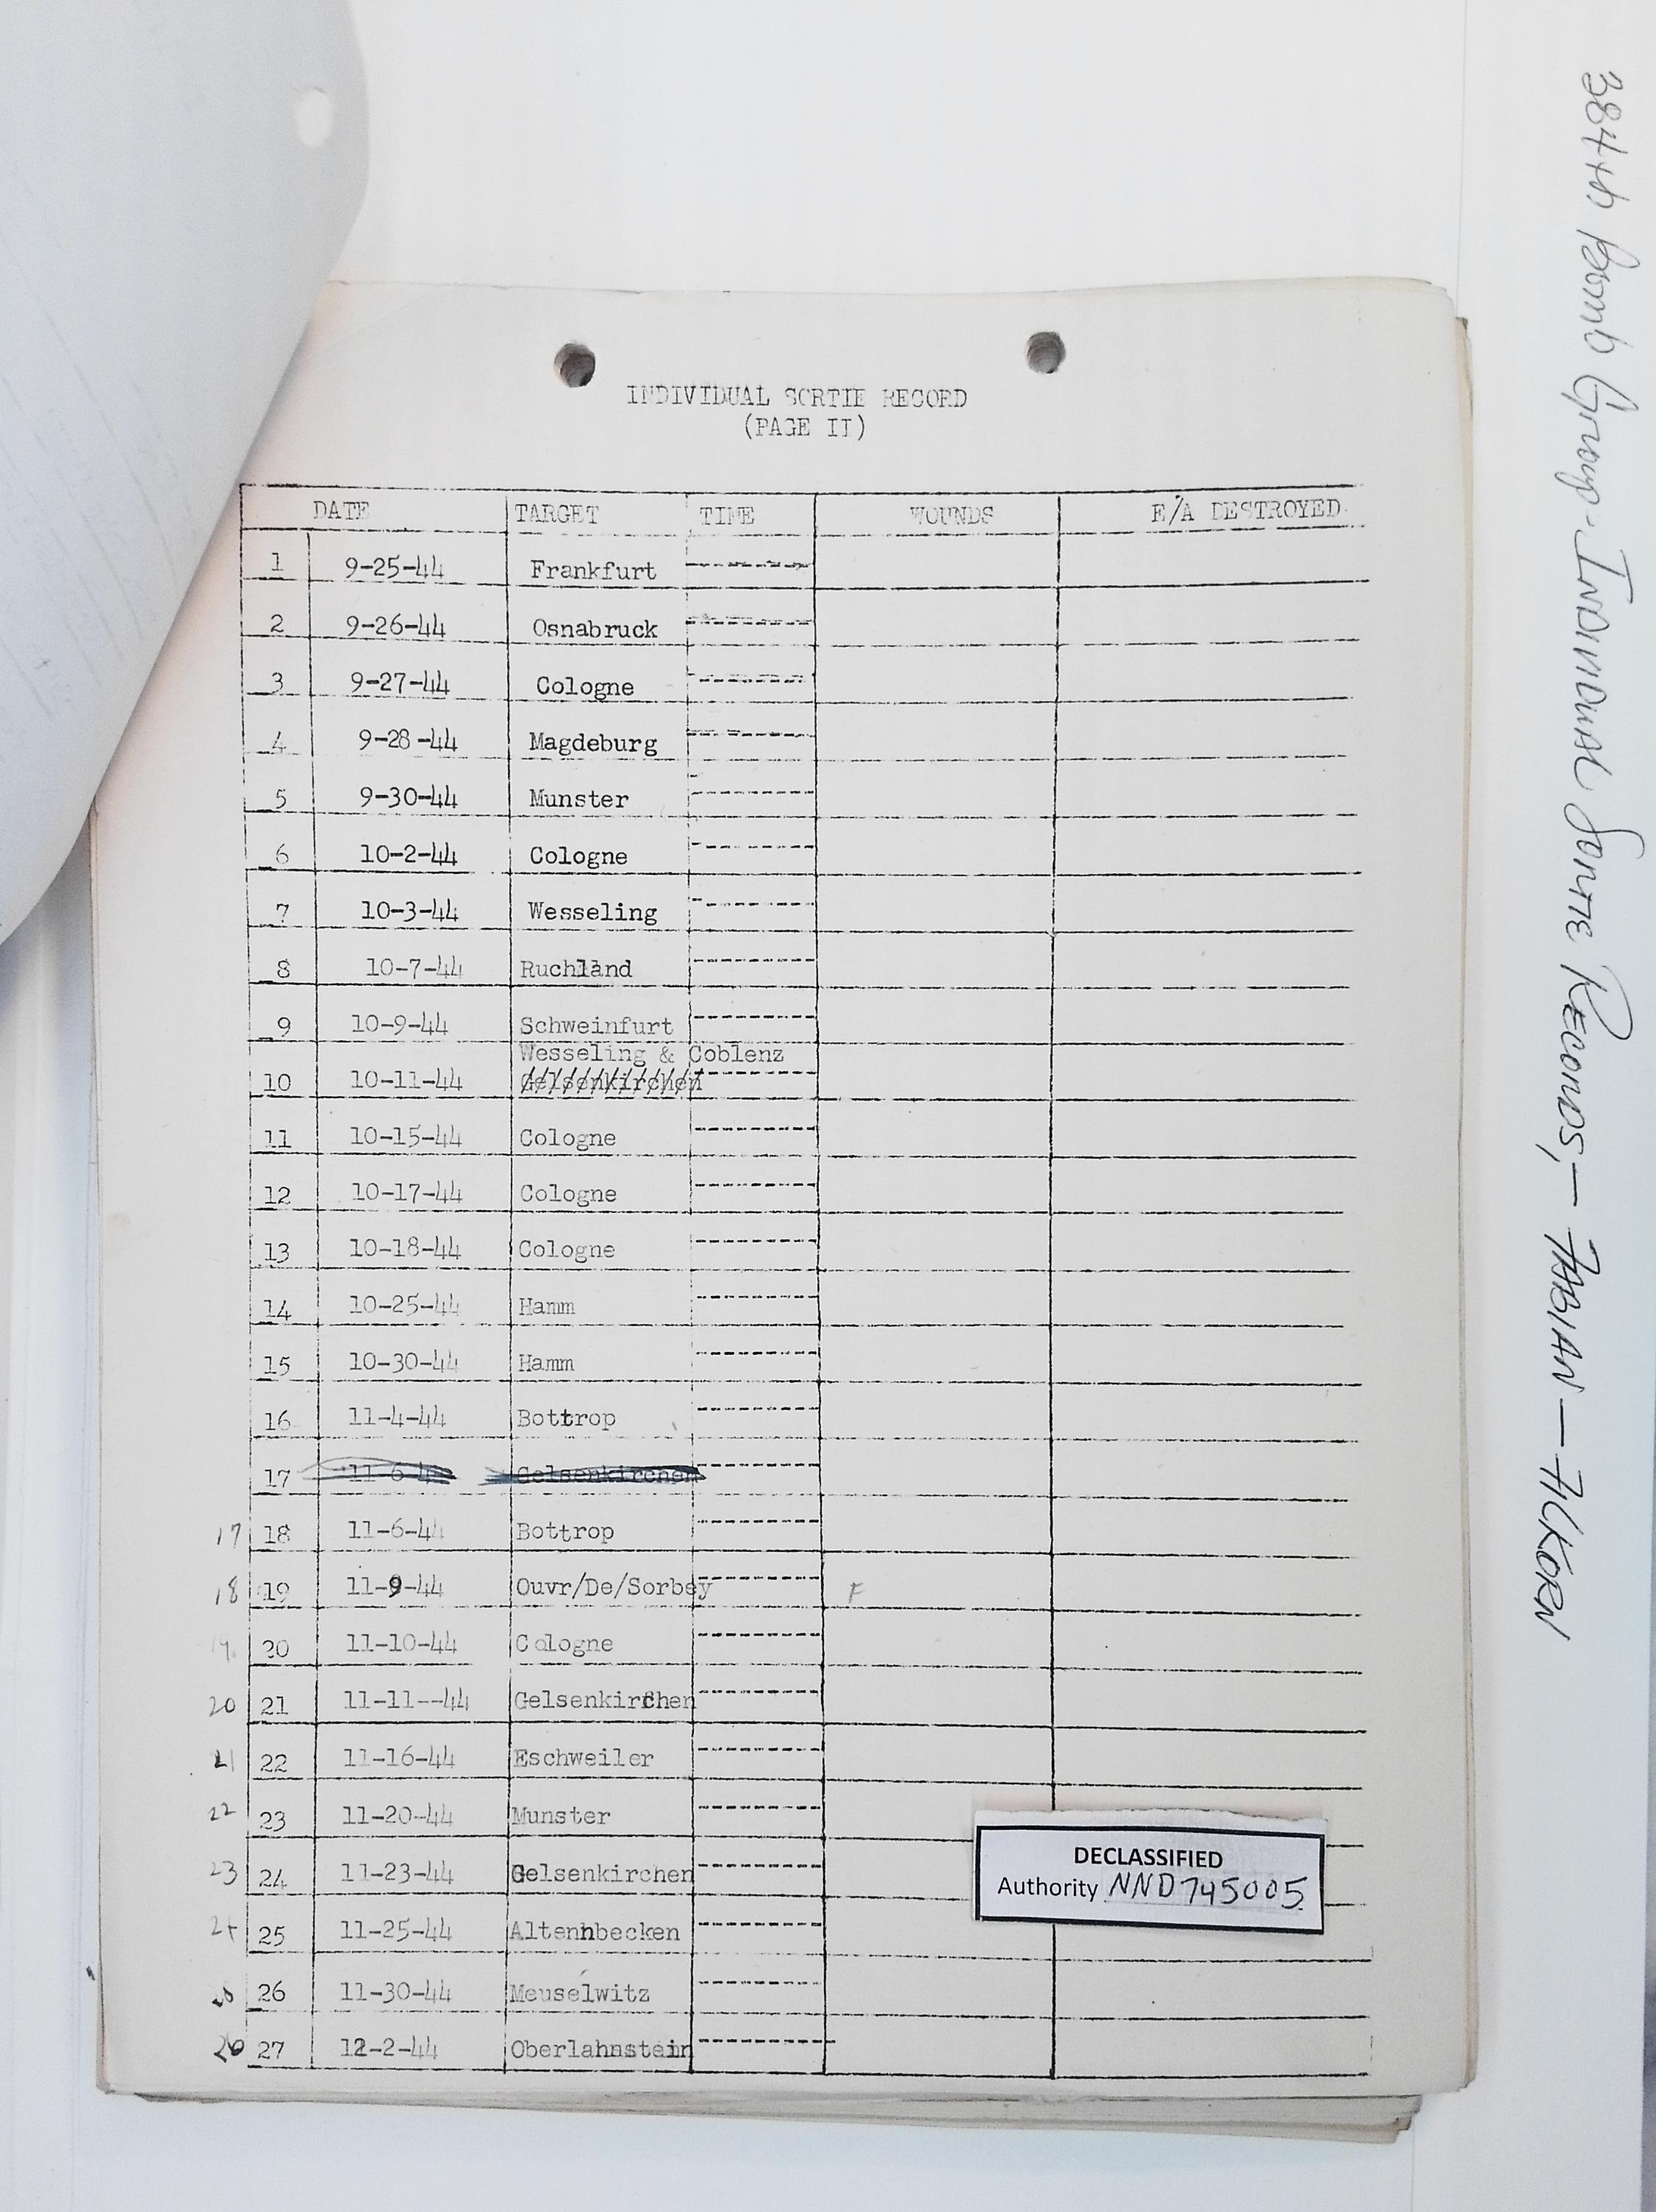 384th Bomb Group - Individual Sortie Records, - FABIAN - FICKORN
INDIVIDUAL SORTIE RECORD
(PAGE II)
DATE TARGET TIME WOUNDS E/A DESTROYED
1 9-25-44 Frankfurt ----------
2 9-26-44 Osnabruck ----------
3 9-27-44 Cologne ----------
4 9-28-44 Magdeburg ----------
5 9-30-44 Munster ----------
6 10-2-44 Cologne ----------
7 10-3-44 Wesseling ----------
8 10-7-44 Ruchland ----------
9 10-9-44 Schweinfurt ----------
Wesseling & Coblenz
10 10-11-44 Gelsenkirchen ----------
11 10-15-44 Cologne ----------
12 10-17-44 Cologne ----------
13 10-18-44 Cologne ----------
14 10-25-44 Hamm ----------
15 10-30-44 Hamm ----------
16 11-4-44 Bottrop ----------
17 11-6-4 Gelsenkirchen ----------
17 18 11-6-44 Bottrop ----------
18 19 11-9-44 Ouvr/De/Sorbey ---------- F
19. 20 11-10-44 Cologne ----------
20 21 11-11--44 Gelsenkirchen ----------
21 22 11-16-44 Eschweiler ----------
22 23 11-20-44 Munster ----------
23 24 11-23-44 Gelsenkirchen ----------
24 25 11-25-44 Altenhbecken ----------
25 26 11-30-44 Meuselwitz ----------
26 27 12-2-44 Oberlahnstein ----------
DECLASSIFIED
Authority NND745005